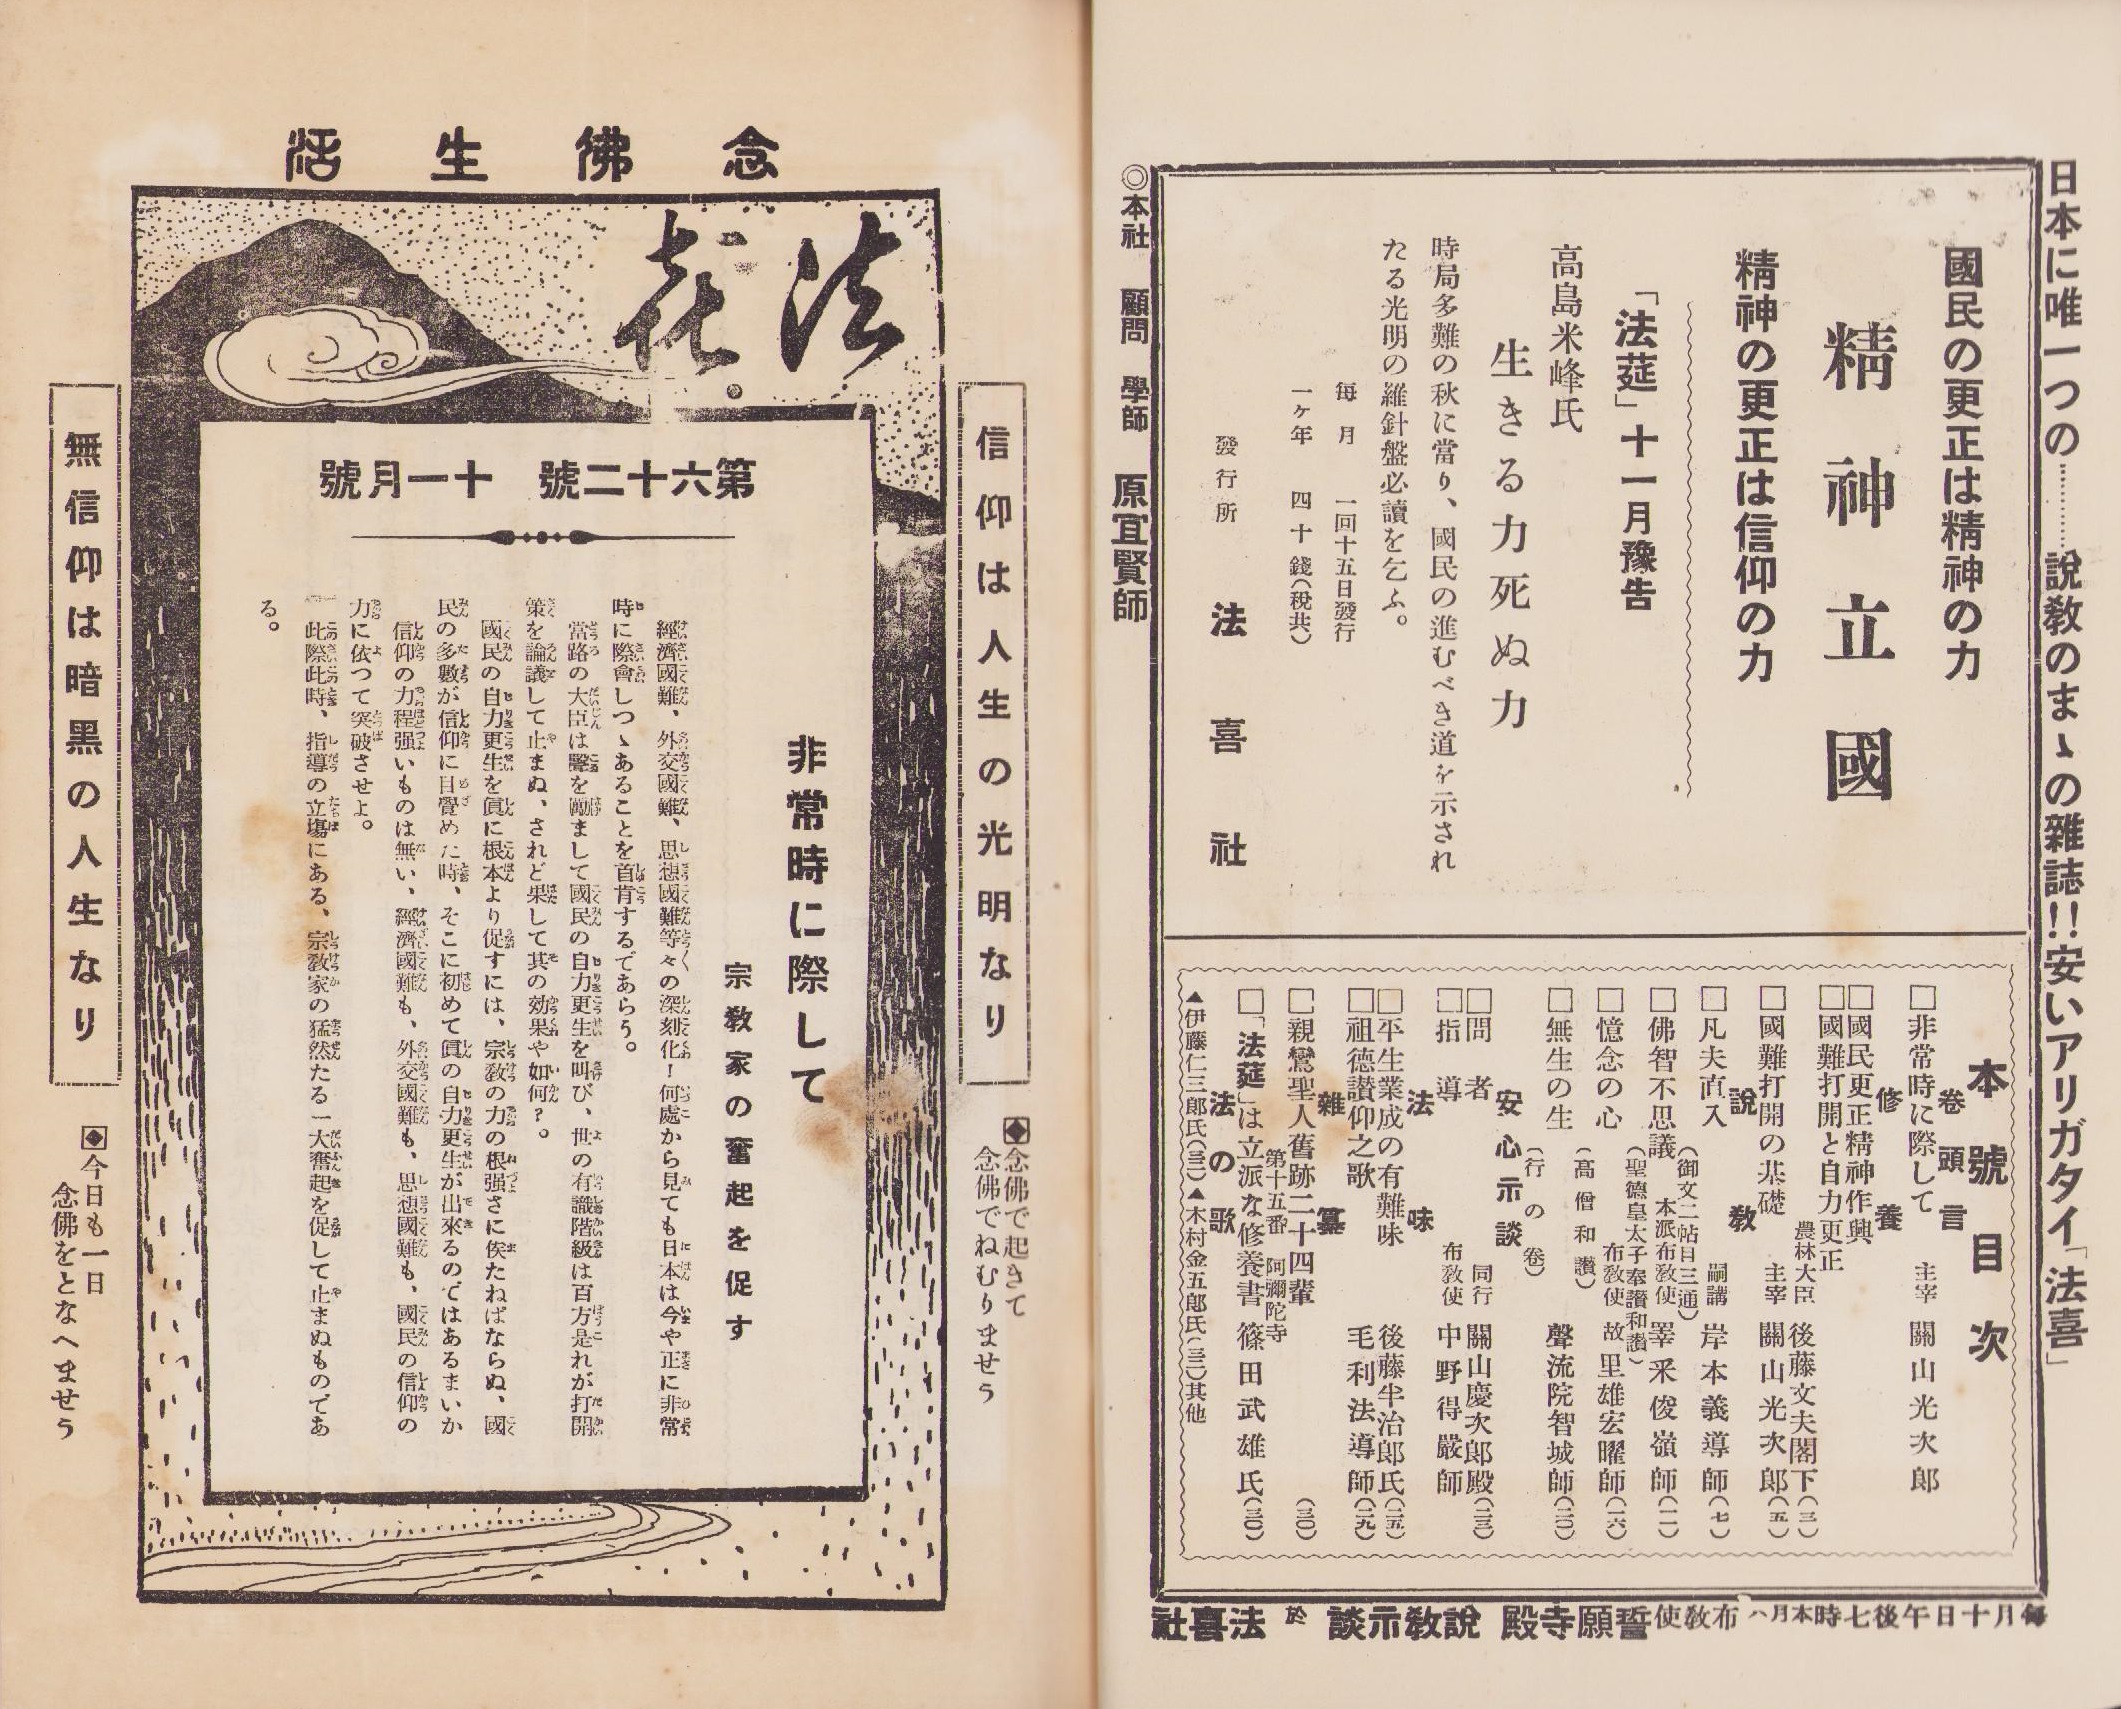 日本に唯一つの…………說敎のまゝの雜誌!!安いアリガタイ「法喜」
國民の更正は精神の力
精神立國
精神の更正は信仰の力
「法莚」十一月豫告
高島米峰氏
生きる力死ぬ力
時局多難の秋に當り、國民の進むべき道を示され
たる光明の羅針盤必讀を乞ふ。
每月 一回十五日發行
一ケ年 四十錢(稅共)
發行所 法喜社
本號目次
卷頭言
□非常時に際して 主宰 關山光次郎
修養
□國民更正精神作興 農林大臣 後藤文夫閣下(三)
□國難打開と自力更正
□國難打開の基礎 主宰 關山光次郎(五)
說敎
□凡夫直入 嗣講 岸本義導師(七)
(御文二帖目三通)
□佛智不思議 本派布敎使 寀俊嶺師(一一)
(聖德皇太子奉讃和讃)
□憶念の心 布敎使 故里雄宏曜師(一六)
(高僧和讃)
□無生の生 聲流院智城師(二〇)
(行の卷)
安心示談
□問者 同行 關山慶次郎殿(二三)
□指導 布敎使 中野得嚴師
法味
□平生業成の有難味 後藤半治郎氏(二五)
□祖德讃仰之歌 毛利法導師(二九)
雜纂
□親鸞聖人舊跡二十四輩 (三〇)
第十五番 阿彌陀寺
□「法莚」は立派な修養書 篠田武雄氏(三〇)
法の歌
▲伊藤仁三郎氏(三二)▲木村金五郎氏(三二)其他
◎本社 顧問 學師 原宜賢師
每月十日午後七時本月ハ布敎使誓願寺殿 說敎示談 於 法喜社
念佛生活
法喜
第六十二號 十一月號
信仰は人生の光明なり
念佛で起きて
念佛でねむりませう
非常時に際して
宗敎家の奮起を促す
經濟國難、外交國難、思想國難等々の深刻化!何處から見ても日本は今や正に非常
時に際會しつゝあることを首肯するであらう。
當路の大臣は聲を勵まして國民の自力更生を叫び、世の有識階級は百方是れが打開
策を論議して止まぬ、されど果して其の効果や如何?。
國民の自力更生を眞に根本より促すには、宗敎の力の根强さに俟たねばならぬ、國
民の多數が信仰に目覺めた時、そこに初めて眞の自力更生が出來るのではあるまいか
信仰の力程强いものは無い、經濟國難も、外交國難も、思想國難も、國民の信仰の
力に依つて突破させよ。
此際此時、指導の立場にある、宗敎家の猛然たる一大奮起を促して止まぬものであ
る。
無信仰は暗黑の人生なり
今日も一日
念佛をとなへませう